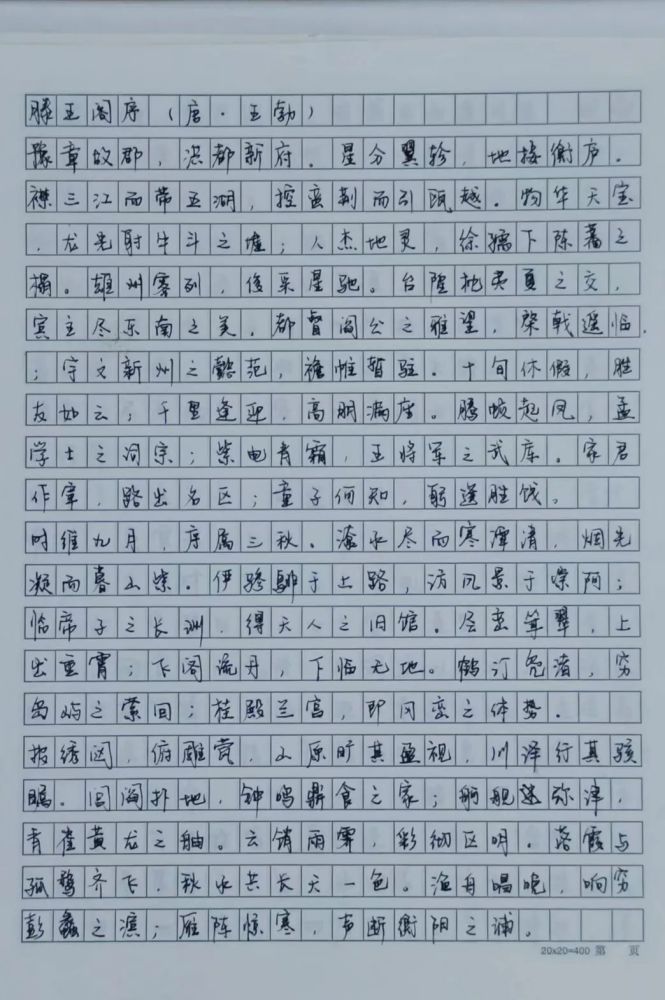 滕王阁序（唐·王勃）
豫章故郡，洪都新府。星分翼轸，地接衡庐。
襟三江而带五湖，控蛮荆而引瓯越。物华天宝
，龙光射牛斗之墟；人杰地灵，徐孺下陈蕃之
榻。雄州雾列，俊采星驰。台隍枕夷夏之交，
宾主尽东南之美。都督阎公之雅望，棨戟遥临
；宇文新州之懿范，襜帷暂驻。十旬休假，胜
友如云；千里逢迎，高朋满座。腾蛟起凤，孟
学士之词宗；紫电青霜，王将军之武库。家君
作宰，路出名区；童子何知，躬逢胜饯。
时维九月，序属三秋。潦水尽而寒潭清，烟光
凝而暮山紫。俨骖騑于上路，访风景于崇阿；
临帝子之长洲，得天人之旧馆。层峦耸翠，上
出重霄；飞阁流丹，下临无地。鹤汀凫渚，穷
岛屿之萦回；桂殿兰宫，即冈峦之体势。
披绣闼，俯雕甍，山原旷其盈视，川泽纡其骇
瞩。闾阎扑地，钟鸣鼎食之家；舸舰迷弥津，
青雀黄龙之舳。云销雨霁，彩彻区明。落霞与
孤鹜齐飞，秋水共长天一色。渔舟唱晚，响穷
彭蠡之滨；雁阵惊寒，声断衡阳之浦。
20×20=400 第 页